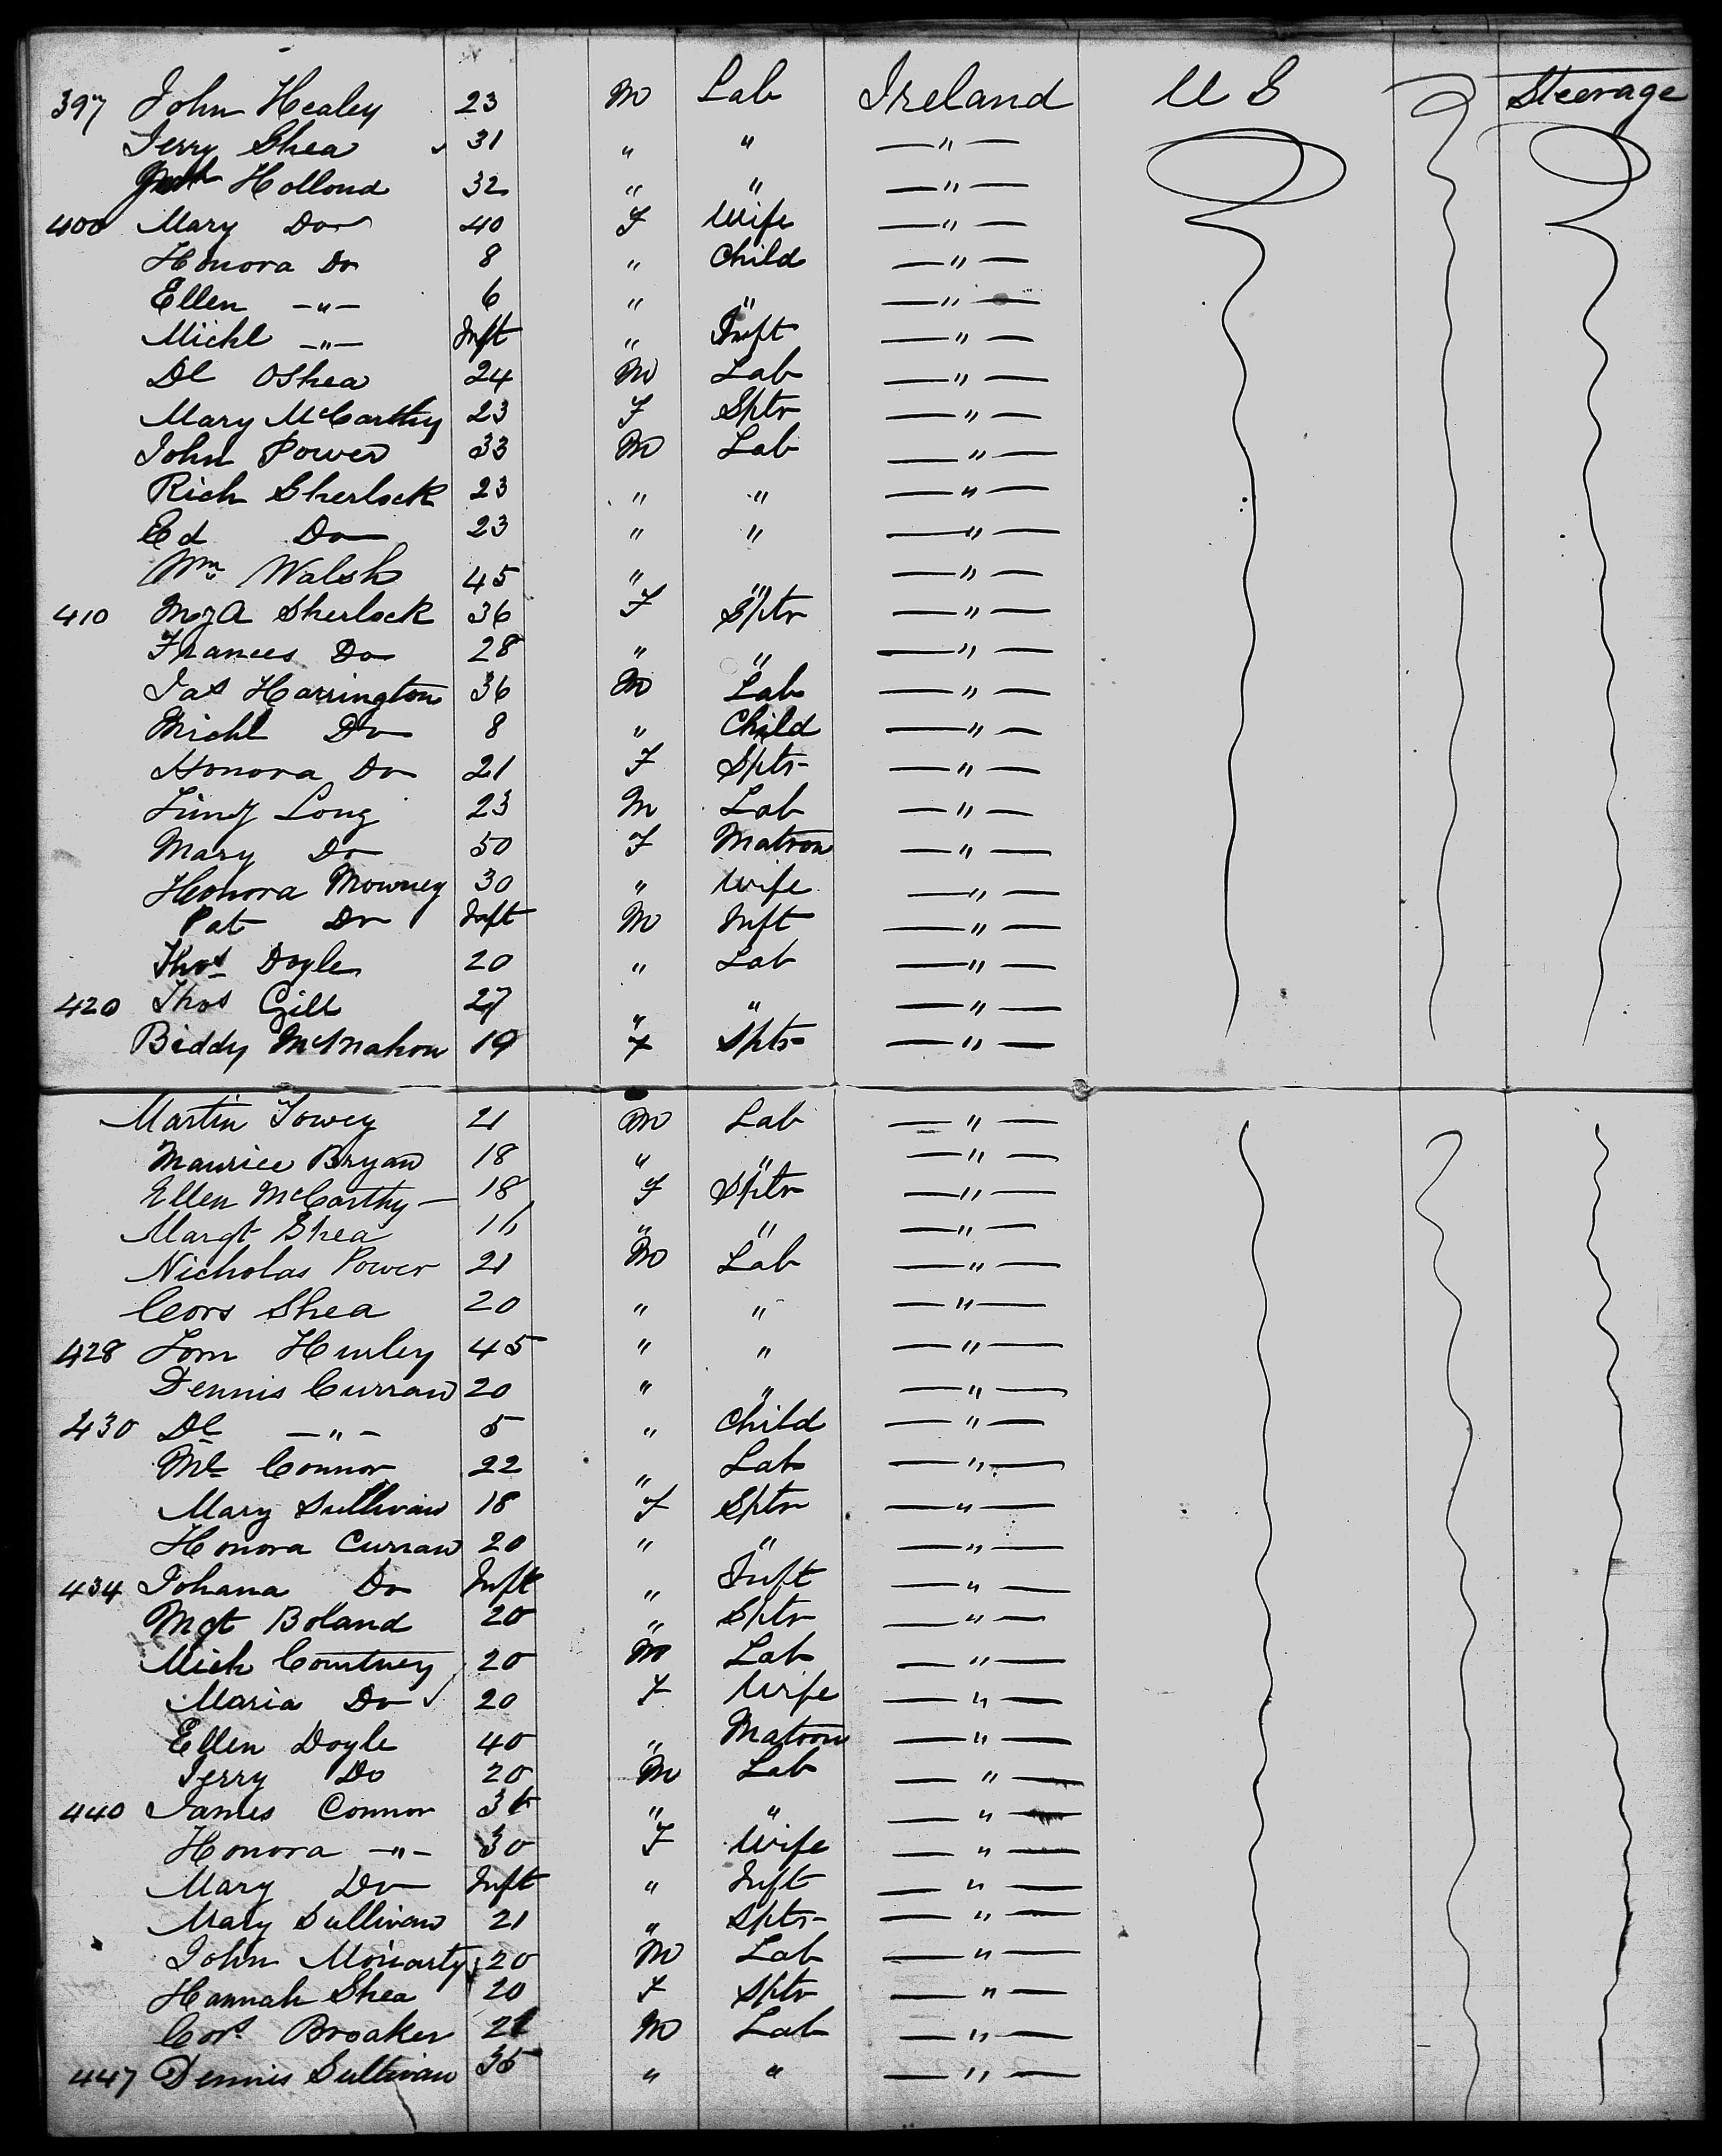 397 John Healey 23 M Lab Ireland U S Steerage
Jerry Shea 31 " " — " —
Hollond 32 " " — " —
400 Mary Do 40 F Wife — " —
Honora Do 8 " Child — " —
Ellen — " — 6 " " — " —
Michl — " — Inft " Inft — " —
Dl OShea 24 M Lab — " —
Mary McCarthy 23 F Sptr — " —
John Power 33 M Lab — " —
Rich Sherlock 23 " " — " —
Ed Do 23 " " — " —
Wm Walsh 45 " " — " —
410 MyA Sherlock 36 F Sptr — " —
Frances Do 28 " " — " —
Jas Harrington 36 M Lab — " —
Michl Do 8 " Child — " —
Honora Do 21 F Sptr — " —
Timy Long 23 M Lab — " —
Mary Do 50 F Matron — " —
Honora Mowney 30 " Wife — " —
Pat Do Inft M Inft — " —
Thos Doyle 20 " Lab — " —
420 Thos Gill 27 " " — " —
Biddy McMahon 19 F Sptr — " —
Martin Towey 21 M Lab — " —
Maurice Bryan 18 " " — " —
Ellen McCarthy — 18 F Sptr — " —
Margt Shea 16 " " — " —
Nicholas Power 21 M Lab — " —
Cors Shea 20 " " — " —
428 Tom Hurley 45 " " — " —
Dennis Curran 20 " " — " —
430 Dl — " — 5 " Child — " —
Ml Connor 22 " Lab — " —
Mary Sullivan 18 F Sptr — " —
Honora Curran 20 " " — " —
434 Johana Do Inft " Inft — " —
Mgt Boland 20 " Sptr — " —
Mich Courtney 20 M Lab — " —
Maria Do 20 F Wife — " —
Ellen Doyle 40 " Matron — " —
Jerry Do 20 M Lab — " —
440 James Connor " " — " —
Honora — " — 30 F Wife — " —
Mary Do Inft " Inft — " —
Mary Sullivan 21 " Sptr — " —
John Moriarty 20 M Lab — " —
Hannah Shea 20 F Sptr — " —
Cors Broaker M Lab — " —
447 Dennis Sullivan 35 " " — " —